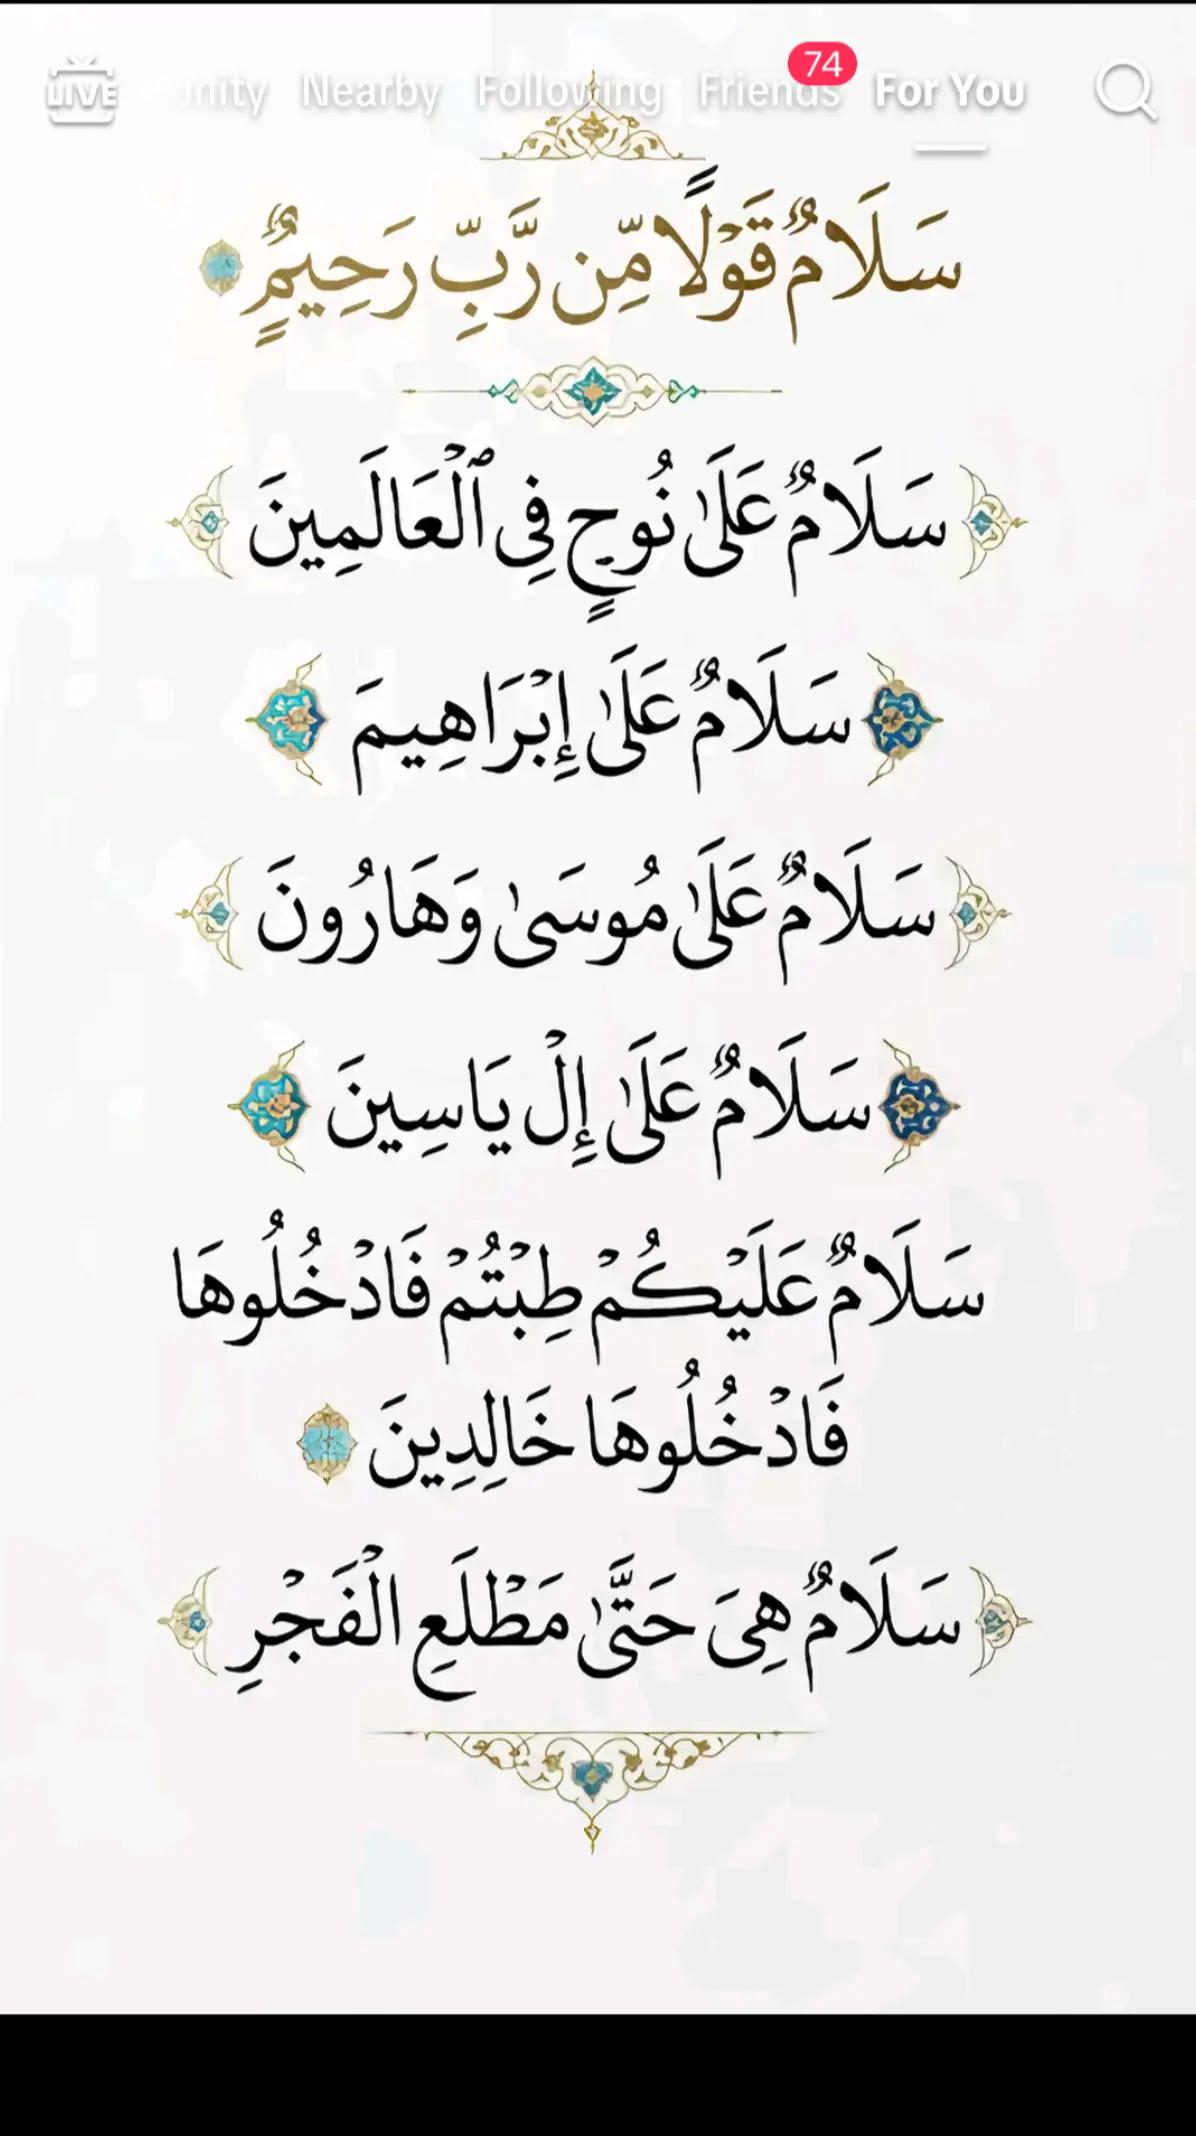 LIVE Nearby Following Friends 74 For You
سَلَامٌ قَوْلًا مِّن رَّبِّ رَحِيمٌٍ
سَلَامٌ عَلَىٰ نُوحٍ فِى ٱلْعَالَمِينَ
سَلَامٌ عَلَىٰ إِبْرَاهِيمَ
سَلَامٌ عَلَىٰ مُوسَىٰ وَهَارُونَ
سَلَامٌ عَلَىٰ إِلْ يَاسِينَ
سَلَامٌ عَلَيْكُمْ طِبْتُمْ فَادْخُلُوهَا
فَادْخُلُوهَا خَالِدِينَ
سَلَامٌ هِىَ حَتَّىٰ مَطْلَعِ الْفَجْرِ